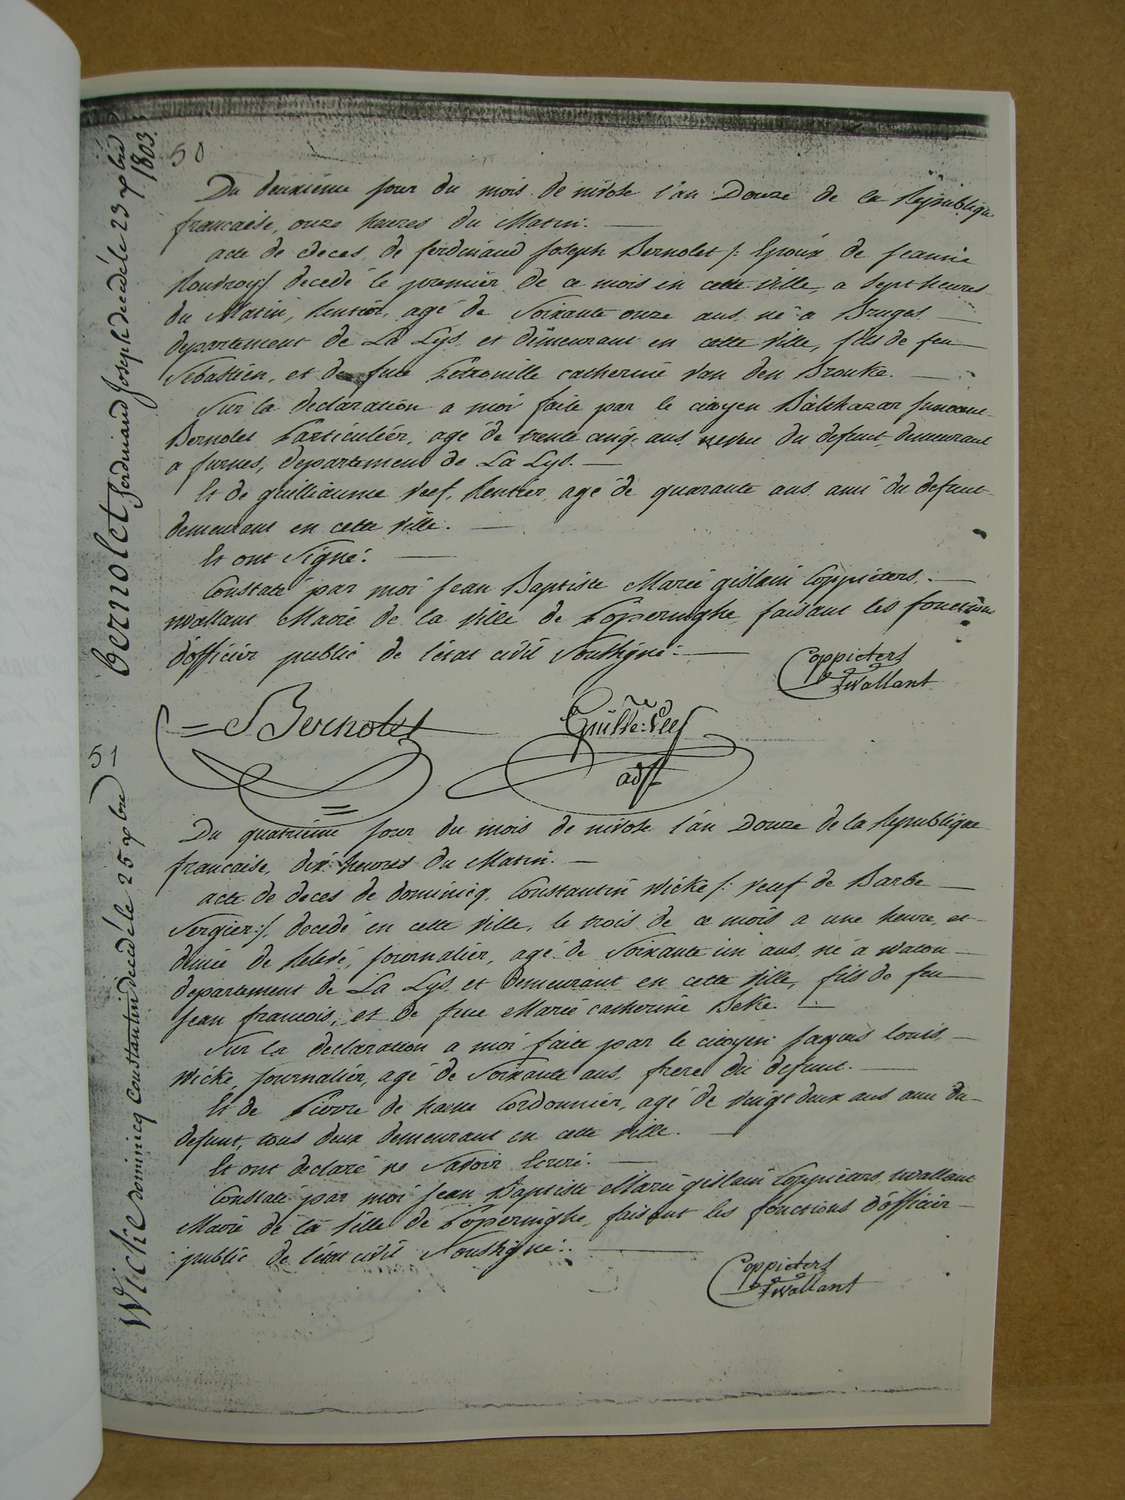 50
Bernolet ferdinand Joseph decedé le 23 xbre 1803.
Du deuxiéme jour du mois de nivose l'an Douze de la Republique
francaise, onze heures du Matin.
acte de deces de ferdinand Joseph Bernolet /: Epoux de jeanne
houvroy/ decedé le premier de ce mois en cette ville, a sept heures
du Matin, Rentier, agé de Soixante onze ans né a Bruges
departement de La Lys et demeurant en cette ville, fils de feu
Sebastien, et de feue Petronille catherine Van den Brouke.
Sur la declaration a moi faite par le citoyen Balthazar
Bernolet Particulier, agé de trente cinq ans neveu du defunt demeurant
a furnes, departement de La Lys.
Et de guilliaume Veef, Rentier agé de quarante ans ami du defunt
demeurant en cette ville.
Et ont Signé.
Constaté par moi Jean Baptiste Marie gislain Coppieters
wallant Maire de la ville de Poperinghe faisant les fonctions
d'officier public de l'etat civil Soussigné.
Coppieters
wallant
Bernolet
Guille: Veef
51
Wicke dominicq Constantin decedé le 25 xbre
Du quatriéme jour du mois de nivose l'an Douze de la Republique
francaise, dix heures du Matin.
acte de deces de dominicq Constantin Wicke /: veuf de Barbe
Sergier:/, decedé en cette ville, le trois de ce mois a une heure et
demie de Relevé, journalier, agé de Soixante un ans né a waton
departement de La Lys et demeurant en cette ville, fils de feu
Jean francois, et de feue Marie catherine Beke
Sur la declaration a moi faite par le citoyen jaques louis
Wicke, journalier, agé de Soixante ans, frere du defunt.
Et de Pierre de have Cordonnier, agé de vingt deux ans ami du
defunt, tous deux demeurant en cette ville.
Et ont declaré ne Savoir Ecrire.
Constaté par moi Jean Baptiste Marie gislain Coppieters wallant
Maire de la ville de Poperinghe, faisant les fonctions d'officier
public de l'etat civil Soussigné.
Coppieters
wallant